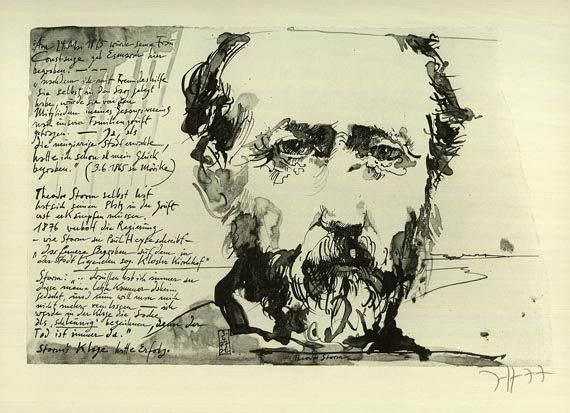 Am 24. Mai 1865 wurde seine Frau
Constanze geb Esmarch hier
begraben. —
"nachdem ich mit Freundeshilfe
sie selbst in den Sarg gelegt
habe, wurde sie von den
Mitgliedern meines Gesangvereins
nach unserer Familiengruft
getragen. — Ja, als
die neugierige Stadt erwachte,
hatte ich schon all mein Glück
begraben." (3.6.1865 an Mörike)
Theodor Storm selbst hat
sich seinen Platz in der Gruft
erst erkämpfen müssen.
1876 verbot die Regierung
— wie Storm an Paul Heyse schreibt —
"das fernere Begraben bei dem in
der Stadt liegenden sog. Kloster Kirchhof"
Storm: ".. draußen hab ich immer an
diese meine letzte Kammer daheim
gedacht, und nun will man mich
nicht mehr reinlassen — ich
werde in der Klage die Sache
als 'schleunig' bezeichnen, denn der
Tod ist immer da."
Storms Klage hatte Erfolg.
Theodor Storm
77